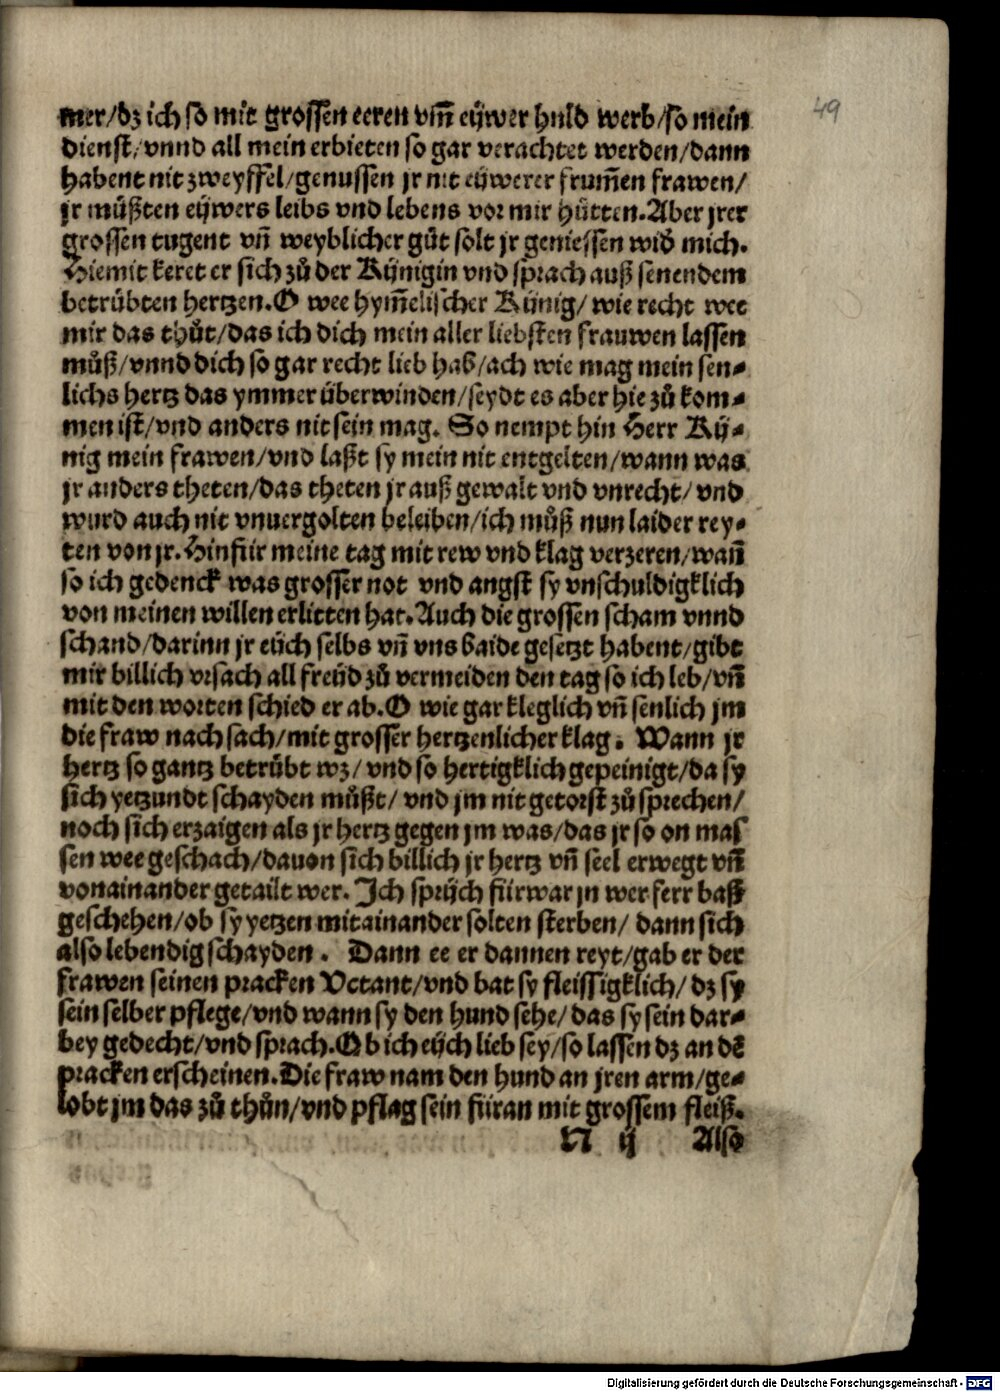 49
mer/dz ich so mit grossen eeren vm̃ eÿwer huld werb/so mein
dienst/vnnd all mein erbieten so gar verachtet werden/dann
habent nit zweyffel/genussen jr nit eÿwerer frum̃en frawen/
jr müßten eÿwers leibs vnd lebens vor mir hütten.Aber jrer
grossen tugent vñ weyblicher güt solt jr geniessen wid̕ mich.
Hiemit keret er sich zů der Kÿnigin vnd sprach auß senendem
betrübten hertzen.O wee hym̃elischer Kÿnig/ wie recht wee
mir das thůt/das ich dich mein aller liebsten frauwen lassen
můß/vnnd dich so gar recht lieb hab/ach wie mag mein sen⸗
lichs hertz das ymmer überwinden/seydt es aber hie zů kom⸗
men ist/vnd anders nit sein mag. So nempt hin Herr Kÿ⸗
nig mein frawen/vnd laßt sy mein nit entgelten/wann was
jr anders theten/das theten jr auß gewalt vnd vnrecht/ vnd
wurd auch nit vnuergolten beleiben/ich můß nun laider rey⸗
ten von jr.Hinfür meine tag mit rew vnd klag verzeren/wañ
so ich gedenck was grosser not vnd angst sy vnschuldigklich
von meinen willen erlitten hat.Auch die grossen scham vnnd
schand/darinn jr eüch selbs vñ vns baide gesetzt habent/gibt
mir billich vrsach all freüd zů vermeiden den tag so ich leb/vñ
mit den worten schied er ab.O wie gar kleglich vñ senlich jm
die fraw nach sach/mit grosser hertzenlicher klag. Wann jr
hertz so gantz betrübt wz/ vnd so hertigklich gepeinigt/da sy
sich yetzundt schayden můßt/ vnd jm nit getorst zů sprechen/
noch sich erzaigen als jr hertz gegen jm was/das jr so on mas
sen wee geschach/dauon sich billich jr hertz vñ seel erwegt vñ
vonainander getailt wer. Ich sprÿch fürwar jn wer ferr baß
geschehen/ob sy yetzen mitainander solten sterben/ dann sich
also lebendig schayden. Dann ee er dannen reyt/gab er der
frawen seinen pracken Vctant/vnd bat sy fleissigklich/ dz sy
sein selber pflege/vnd wann sy den hund sehe/ das sy sein dar⸗
bey gedecht/vnd sprach.Ob ich eÿch lieb sey/so lassen dz an dẽ
pracken erscheinen.Die fraw nam den hund an jren arm/ge⸗
lobt jm das zů thůn/vnd pflag sein füran mit grossem fleiß.
N ij Also
Digitalisierung gefördert durch die Deutsche Forschungsgemeinschaft - DFG